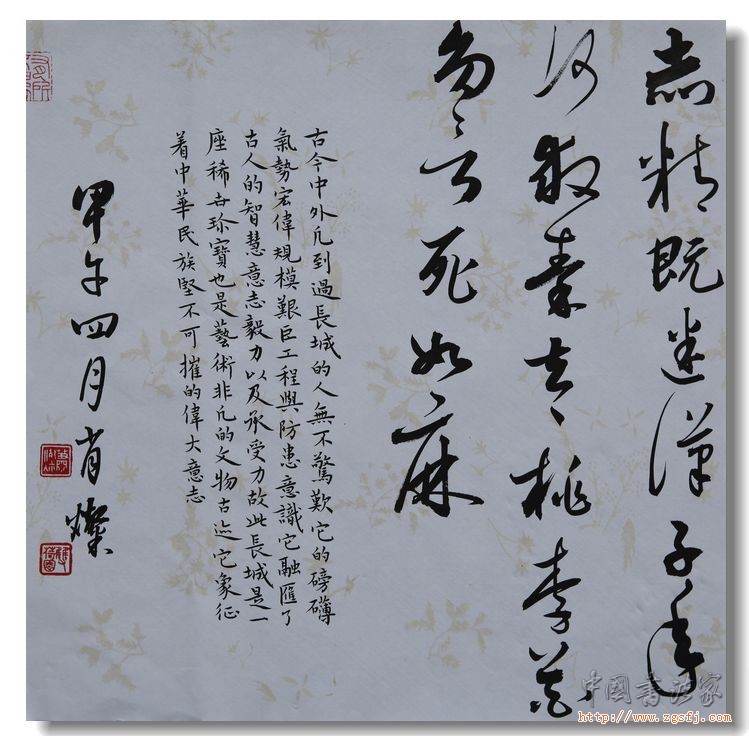 赤精既迷漢子年
何救秦去々桃李花
言死如麻
古今中外凡到過長城的人無不驚歎它的磅礴
氣勢宏偉規模艱巨工程與防患意識它融匯了
古人的智慧意志毅力以及承受力故此長城是一
座稀世珍寶也是藝術非凡的文物古迹它象征
着中華民族堅不可摧的偉大意志
甲午四月肖燦
中国书法家
http://www.zgsfj.com